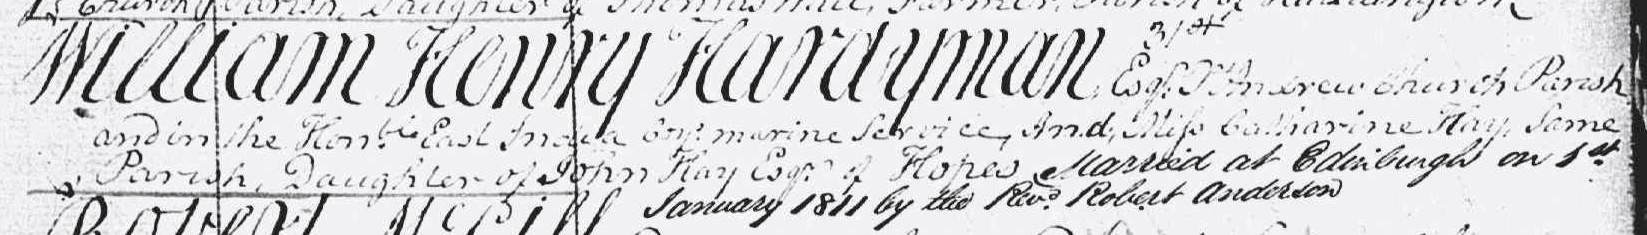 Church Parish, Daughter of Thomas
William Henry Hardyman 31st Esqr. St Andrew Church Parish
and in the Honble. East India Coys. marine Service, And, Miss Catharine Hay, Same
Parish, Daughter of John Hay Esqr. of Hopes, Married at Edinburgh on 1st
January 1811 by the Revd. Robert Anderson
Robert